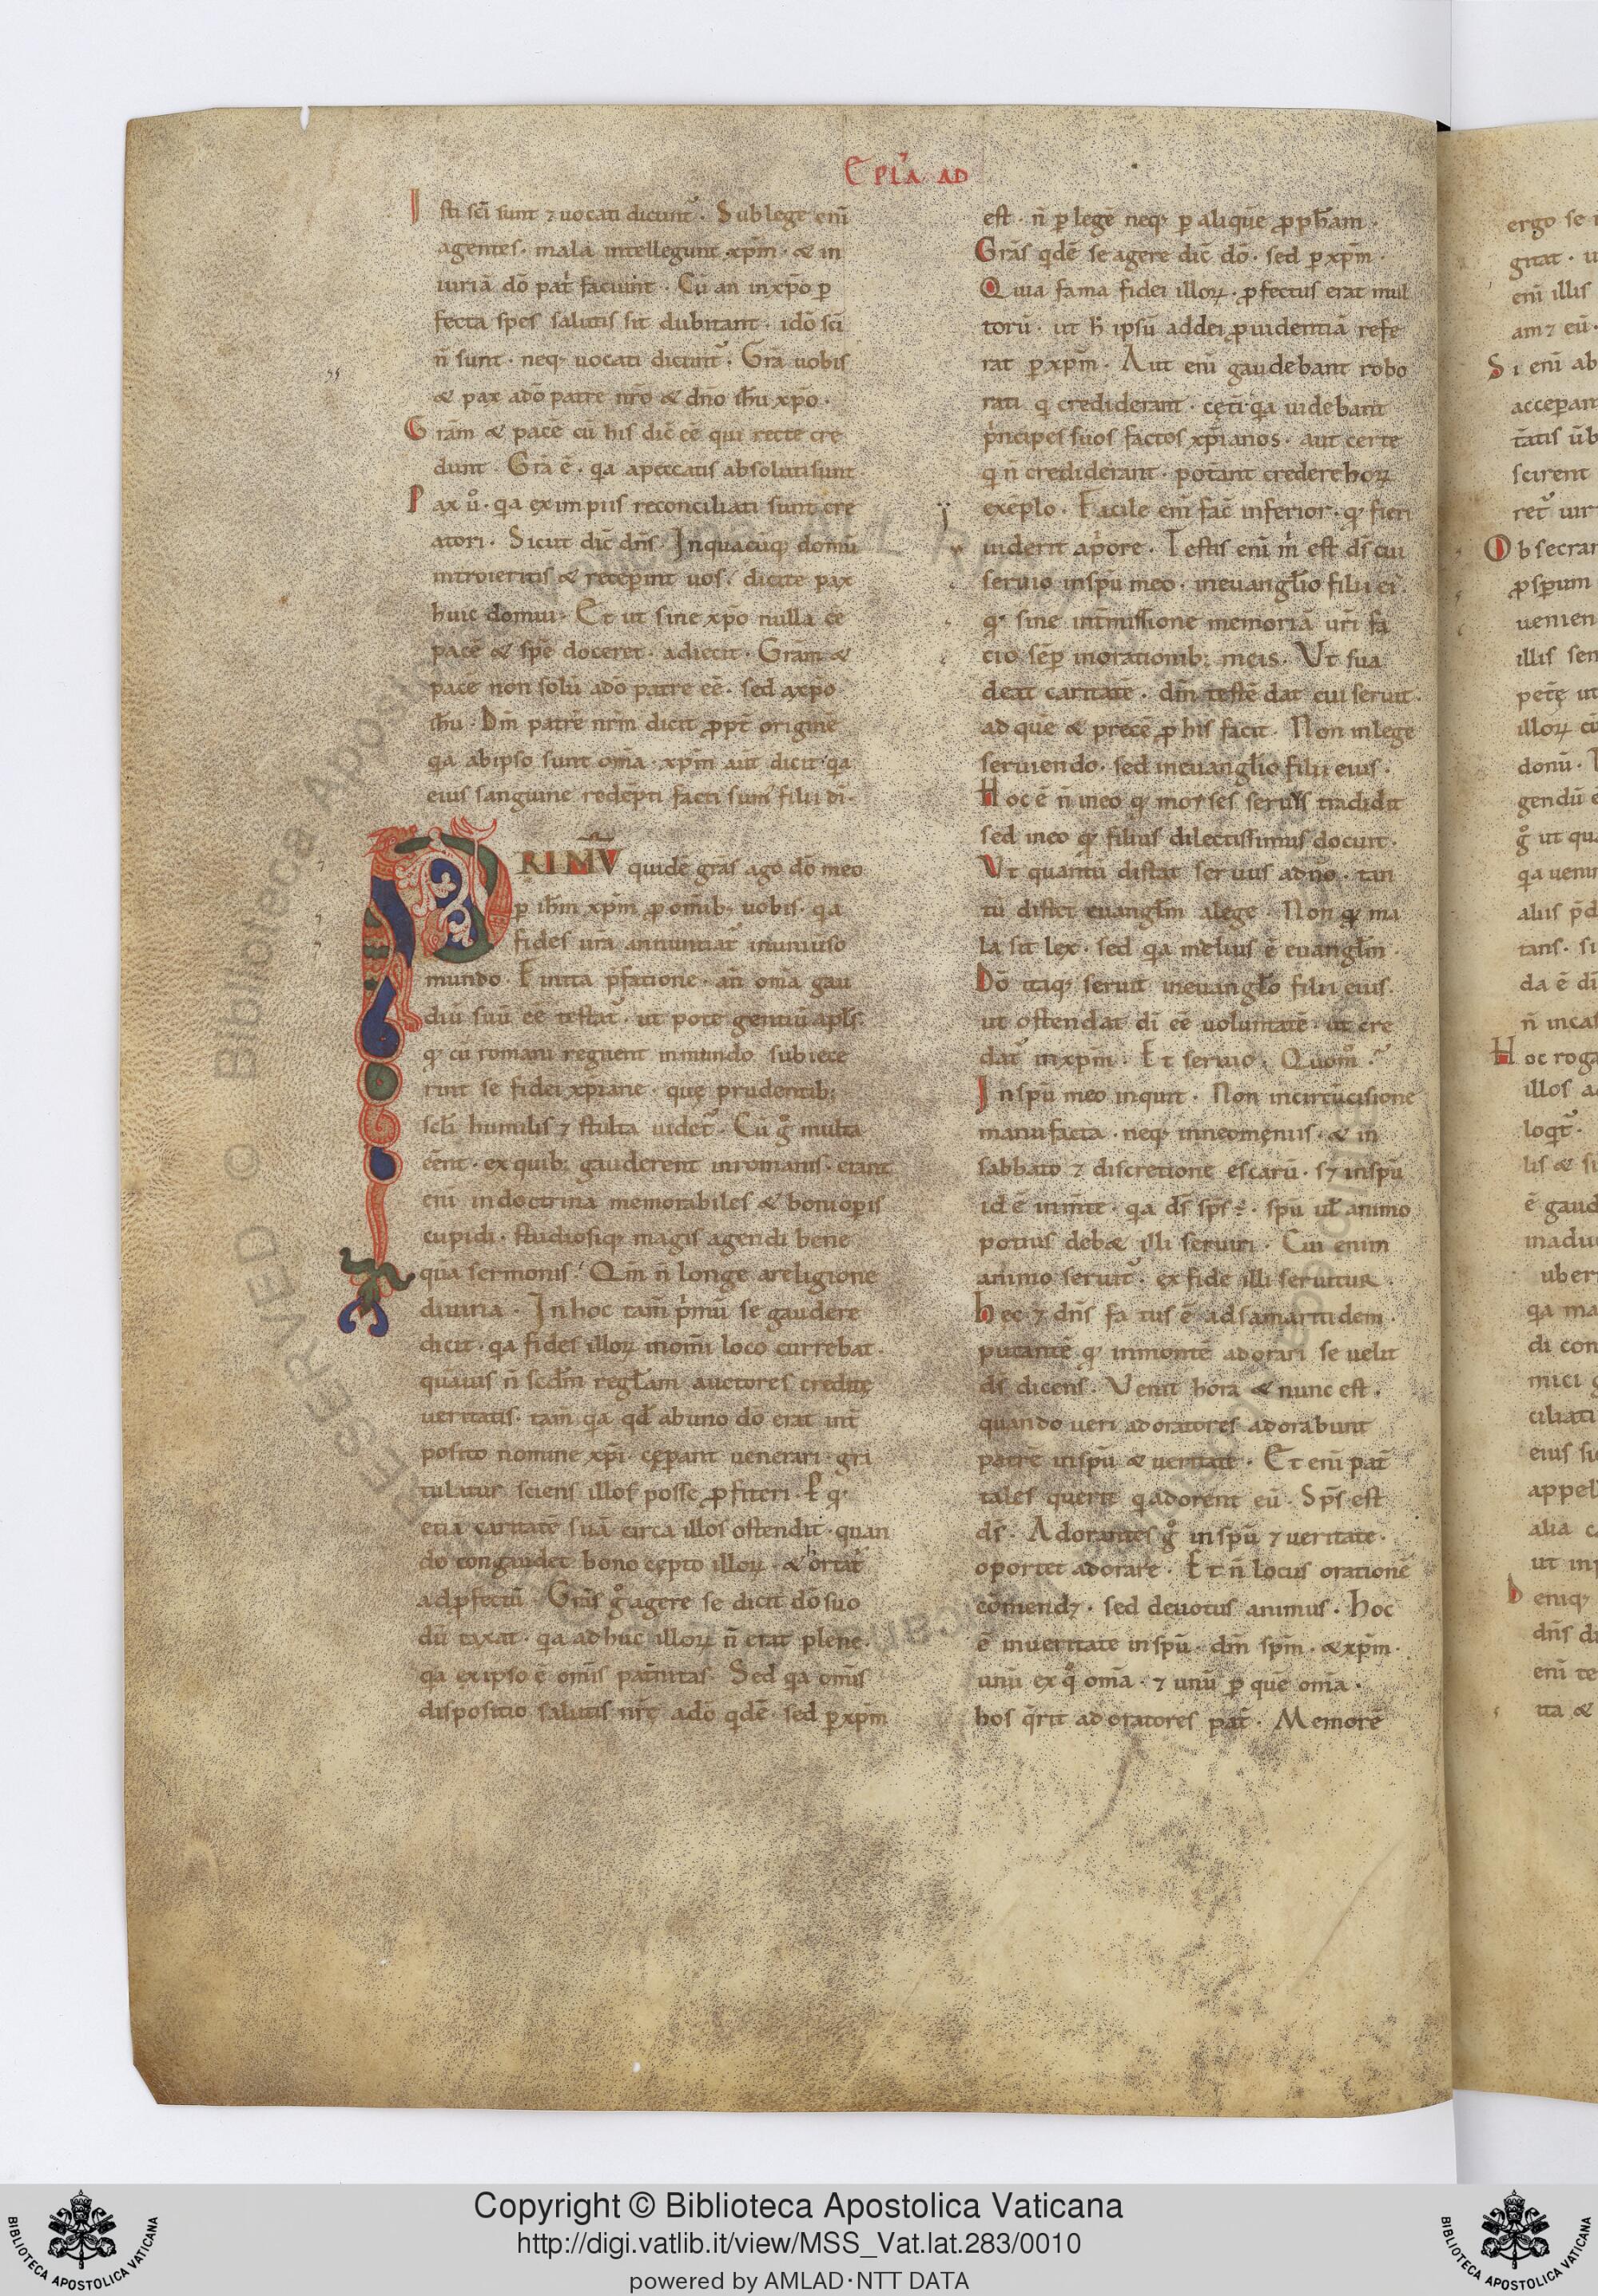 Epl̄a ad
Isti sc̄i sunt ⁊ uocati dicunt᷑. Sub lege eni̅
agentes. mala intellegunt xp̅m. & in
iuria̅ do̅ pat̅ faciunt. Cu̅ an in xp̅o p̲
fecta spes salutis sit dubitant. ido̅ sc̅i
n̅ sunt. neq; uocati dicunt᷑. Gr̅a uobis
& pax a do̅ patre nr̅o & dn̅o ih̅u xp̅o.
Gra̅m & pace̅ cu̅ his dic̅ ee̅ qui recte cre
dunt. Gr̅a e̅. qa a peccatis absoluti sunt.
Pax ů. qa ex impiis reconciliati sunt cre
atori. Sicut dic̅ dn̅s. In quacu̅q; domu̅
introieritis & recep̲int uos. dicite pax
huic domui. Et ut sine xp̅o nulla e̅e
pace̅ & spe̅ doceret. adiecit. Gra̅m &
pace̅ non solu̅ a do̅ patre ee̅. sed a xp̅o
ih̅u. Dm̅ patre̅ nr̅m dicit ppt̅ origine̅
qa ab ipso sunt om̅a. xp̅m aut̅ dicit qa
eius sanguine rede̅pti facti sum᷒ filii di̅.
PRIMV̅ quide̅ gra̅s ago do̅ meo
p̲ ih̅m xp̅m p̲ om̅ib; uobis. qa
fides ur̅a annuntiat᷑ in uniu̅so
mundo. Finita p̅fatione. an̅ om̅a gau
diu̅ suu̅ ee̅ testat᷑. ut pote gentiu̅ apl̅s.
q̲ cu̅ romani regnent in mundo. subiece
rint se fidei xp̅iane. que̜ prudentib;
scl̅i humilis ⁊ stulta uidet᷑. Cu̅ g̊ multa
ee̅nt. ex quib; gauderent in romanis. erant
eni̅ in doctrina memorabiles & boni op̲is
cupidi. studiosiq; magis agendi bene
qua̅ sermonis. Qm̅ n̅ longe a religione
diuina. In hoc tam̅ p̍mu̅ se gaudere
dicit. qa fides illoꝝ in om̅i loco currebat.
qua̅uis n̅ scd̅m regl̅am auctores tradite̜
ueritatis. tam̅ qa qd̅ ab uno do̅ erat int̅
posito nomine xp̅i. ce̜p̲ant uenerari. gra
tulatur sciens illos posse p̲ficeri. P q̲
etia̅ caritate̅ sua̅ circa illos ostendit. quan
do congaudet bono ce̜pto illoꝝ. & hortat᷑
ad p̲fectu̅. Gra̅s g̊ agere se dicit do̅ suo
du̅ taxat. qa adhuc illoꝝ n̅ erat plene.
qa ex ipso e̅ om̅is pat̅nitas. Sed qa om̅is
dispositio salutis nr̅e̜ a do̅ qde̅. sed p̲ xp̅m
est. n̅ p̲ lege̅ neq; p̲ alique̅ pph̅am.
Gra̅s qde̅ se agere dic̅ do̅. sed p̲ xp̅m.
Quia fama fidei illoꝝ. p̲fectus erat mul
toru̅. ut h̅ ipsu̅ ad dei p̲uidentia̅ refe
rat p̲ xp̅m. Aut eni̅ gaudebant robo
rati q̍ crediderant. ce̜ti qa uidebant
p̍ncipes suos factos xp̅ianos. aut certe
q̍ n̅ crediderant. pot̅ant credere hoꝝ
exe̅plo. Facile eni̅ fac̅ inferior. q̲ fieri
uiderit a p̍ore. Testis eni̅ m̍ est ds̅ cui
seruio in spu̅ meo. in euangl̅io filii ei᷒.
q̲ sine int̅missione memoria̅ ur̅i fa
cio se̅p̲ in orationib; meis. Vt sua
deat caritate̅. dm̅ teste̅ dat cui seruit.
ad que̅ & prece̅ p̲ his facit. Non in lege
seruiendo. sed in euangl̅io filii eius.
Hoc e̅ n̅ in eo q̲ moyses seruus tradidit
sed in eo q̲ filius dilectissimus docuit.
Vt quantu̅ distat seruus a dn̅o. tan
tu̅ distet euangl̅m a lege. Non q̲ ma
la sit lex. sed qa melius e̅ euangl̅m.
Do̅ itaq; seruit in euangl̅o filii eius.
ut ostendat di̅ ee̅ uoluntate̅. ut cre
dat᷑ in xp̅m. Et seruio. Quom̊?
In spu̅ meo inquit. Non in circu̅cisione
manu facta. neq; in neomeniis. & in
sabbato ⁊ discretione escaru̅. s; in spu̅
id e̅ in m̅te. qa ds̅ sps̅ e̅. spu̅ ul̅ animo
potius deb& illi seruiri. Cui enim
animo seruit᷑. ex fide illi seruitur.
hec ⁊ dn̅s fatus e̅ ad samaritidem
putante̅ q̲ in monte adorari se uelit
ds̅ dicens. Venit hora & nunc est.
quando ueri adoratores adorabunt
patre̅ in spu̅ & ueritate. Et eni̅ pat̅
tales querit q̍ adorent eu̅. Sps̅ est
ds̅. Adorantes g̊ in spu̅ ⁊ ueritate.
oportet adorare. Et n̅ locus oratione̅
co̅mend;. sed deuotus animus. hoc
e̅ in ueritate in spu̅. dm̅ spm̅. & xp̅m.
unu̅ ex q̊ om̅a. ⁊ unu̅ p̲ que̅ om̅a.
hos q̍rit adoratores pat̅. Memore̅
Copyright © Biblioteca Apostolica Vaticana
http://digi.vatlib.it/view/MSS_Vat.lat.283/0010
powered by AMLAD·NTT DATA
BIBLIOTECA APOSTOLICA VATICANA
BIBLIOTECA APOSTOLICA VATICANA